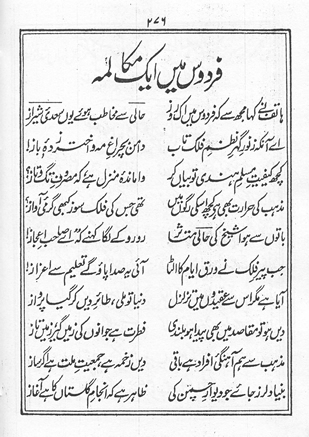 ۲۷۶
فردوس میں ایک مکالمہ
ہاتف نے کہا مجھ سے کہ فردوس میں اک روز
حالی سے مخاطب ہوئے یوں سعدیِ شیراز
اے آنکہ ز نورِ گہرِ نظمِ فلک تاب
دامن بچراغِ مہ و اختر زدۂ باز!
کچھ کیفیتِ مسلمِ ہندی تو بیاں کر
واماندۂ منزل ہے کہ مصروفِ تگ و تاز؟
مذہب کی حرارت بھی ہے کچھ اسکی رگوں میں
تھی جس کی فلک سوز کبھی گرمیِ آواز؟
باتوں سے ہوا شیخ کی حالی متاثر
رو رو کے لگا کہنے کہ اے صاحبِ اعجاز!
جب پیرِ فلک نے ورق ایام کا الٹا
آئی یہ صدا پاؤگے تعلیم سے اعزاز!
آیا ہے مگر اس سے عقیدوں میں تزلزل
دنیا تو ملی، طائرِ دیں کر گیا پرواز
دیں ہو تو مقاصد میں بھی پیدا ہو بلندی
فطرت ہے جوانوں کی زمیں گیر زمیں تاز
مذہب سے ہم آہنگیِ افراد ہے باقی
دیں زخمہ ہے جمعیتِ ملت ہے اگر ساز
بنیاد لرز جائے جو دیوارِ چمن کی
ظاہر ہے کہ انجامِ گلستاں کا ہے آغاز